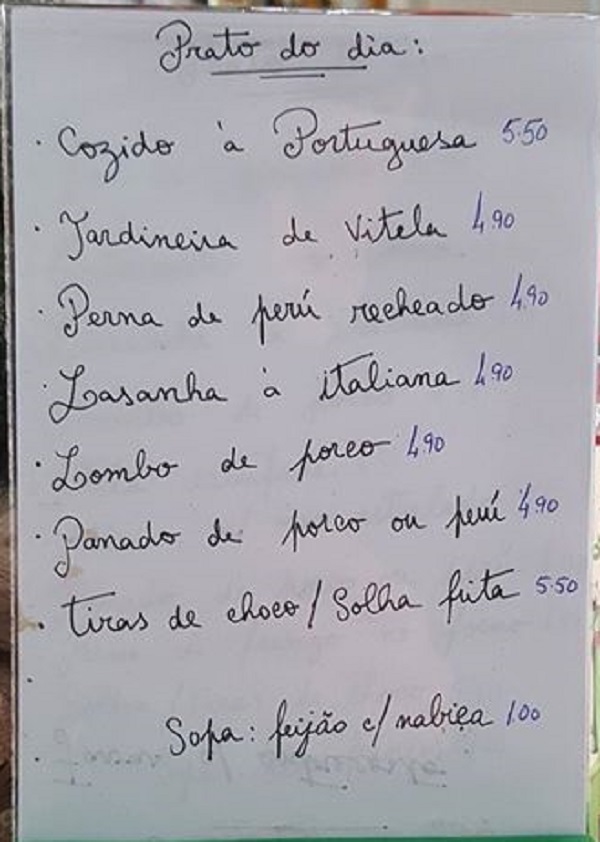 Prato do dia:
· Cozido à Portuguesa 5.50
· Jardineira de Vitela 4.90
· Perna de perú recheado 4.90
· Lasanha à italiana 4.90
· Lombo de porco 4.90
· Panado de porco ou perú 4.90
· Tiras de choco / Solha frita 5.50
Sopa: feijão c/ nabiça 1.00